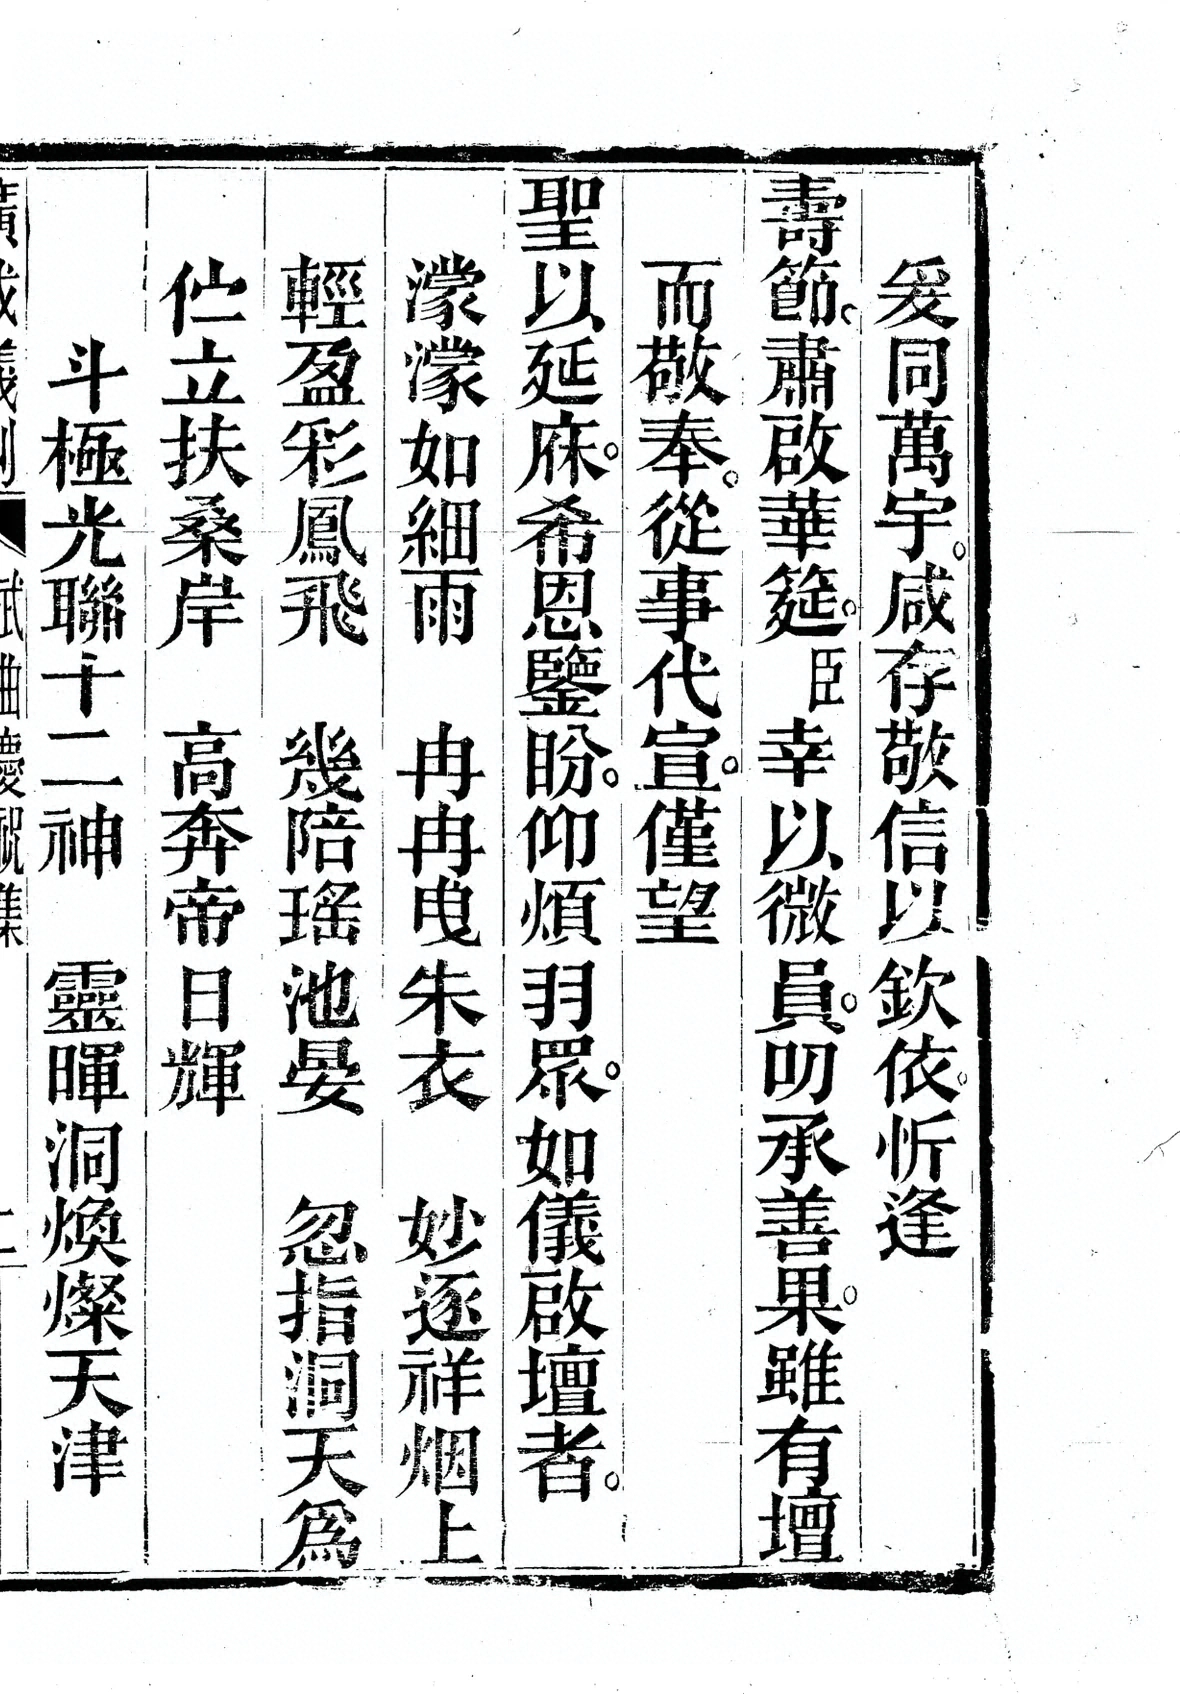 爰同萬宇。咸存敬信以欽依。忻逢
壽節。肅啟華筵。臣幸以微員。叨承善果。雖有壇
而敬奉。從事代宣。僅望
聖以延庥。希恩鑒盼。仰煩羽眾。如儀啟壇者。
濛濛如細雨　冉冉曳朱衣　妙逐祥烟上
輕盈彩鳳飛　幾陪瑤池晏　忽指洞天為
伫立扶桑岸　高奔帝日輝
斗極光聯十二神　靈暉洞煥燦天津
廣成儀制　曲慶祝集